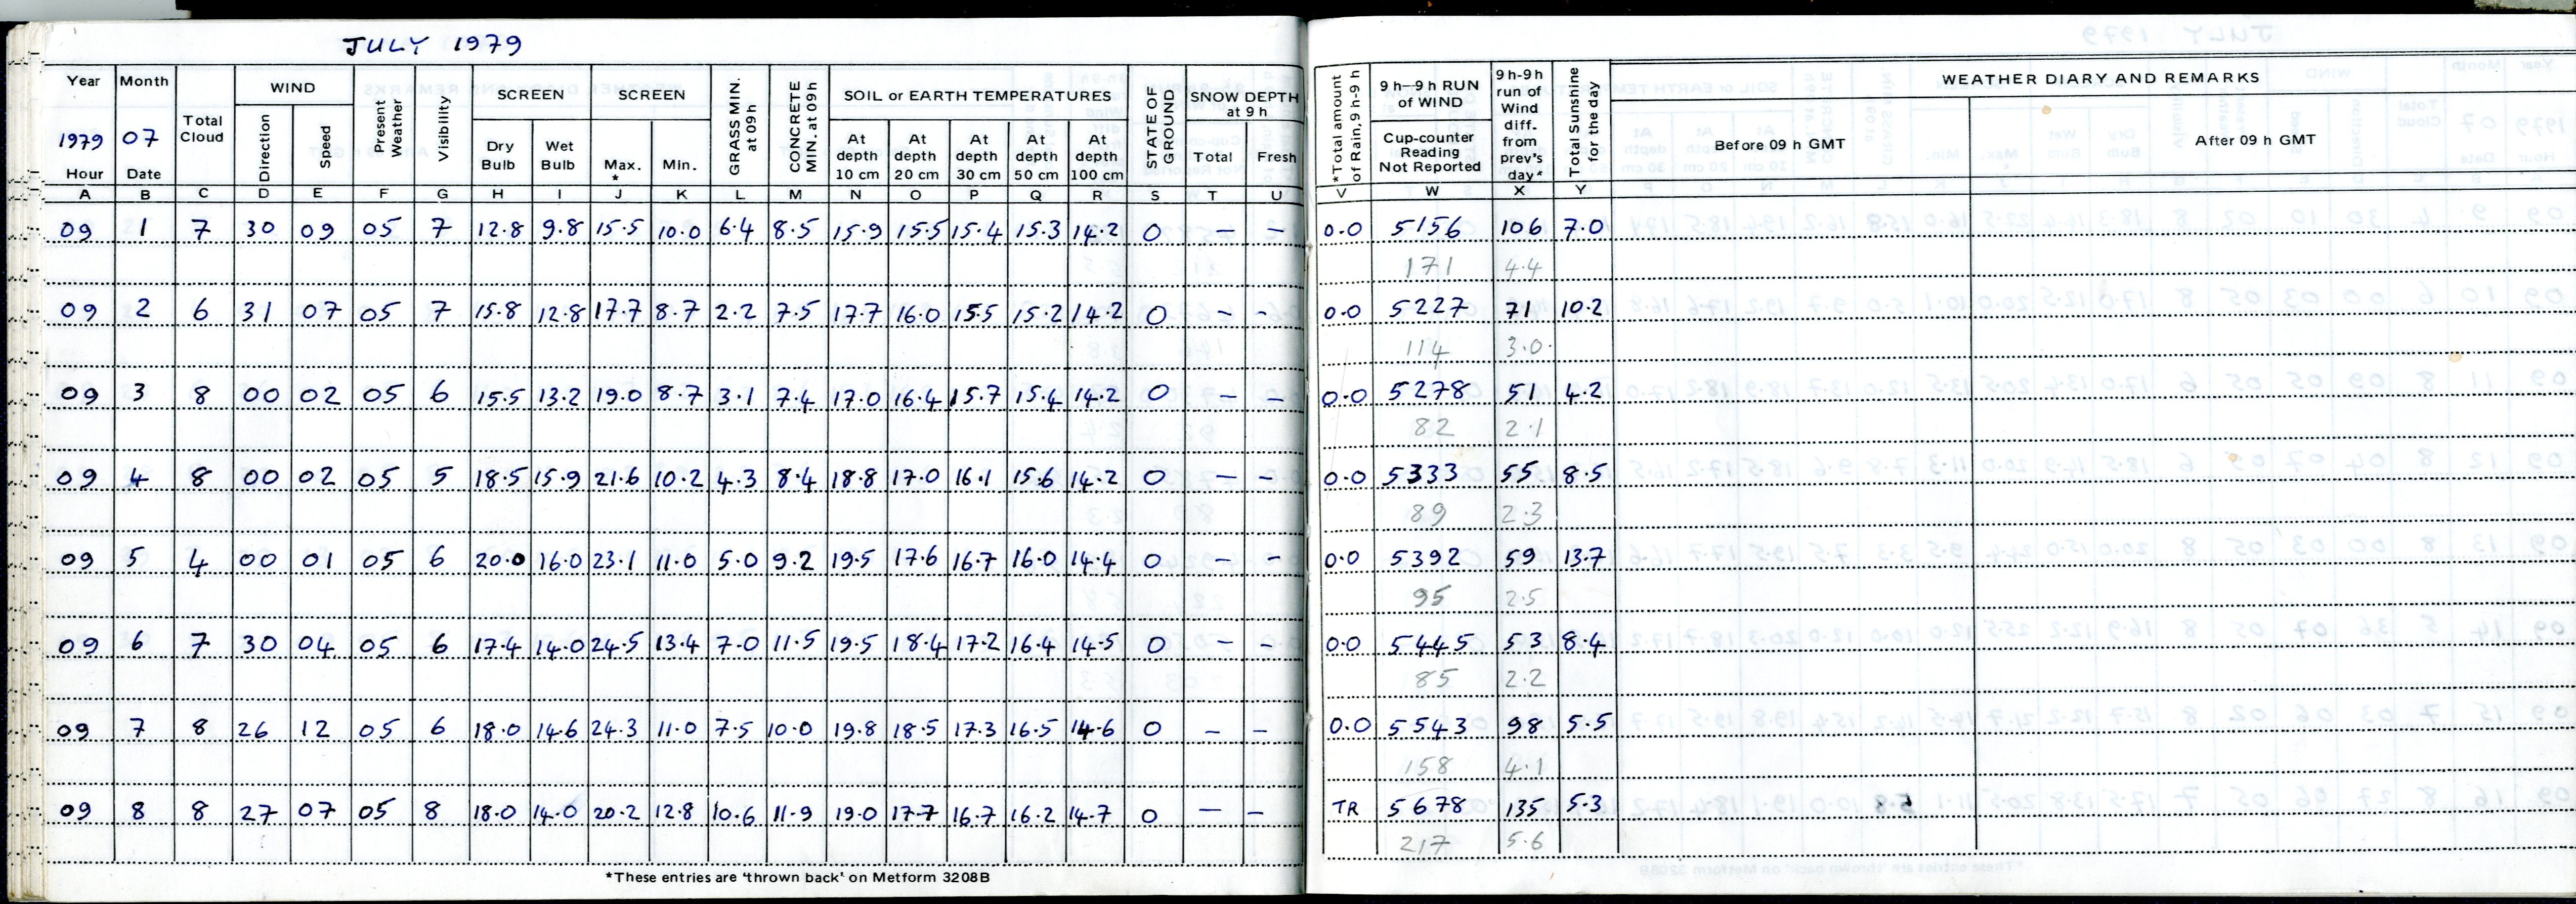 JULY 1979
Year Month Total Cloud WIND Present Weather Visibility SCREEN SCREEN GRASS MIN. at 09h CONCRETE MIN. at 09h SOIL or EARTH TEMPERATURES STATE OF GROUND SNOW DEPTH at 9 h *Total amount of Rain, 9h-9h 9 h—9 h RUN of WIND 9h-9h run of Wind diff. from prev's day* Total Sunshine for the day WEATHER DIARY AND REMARKS
1979 07 Direction Speed Dry Bulb Wet Bulb Max. * Min. At depth 10 cm At depth 20 cm At depth 30 cm At depth 50 cm At depth 100 cm Total Fresh Cup-counter Reading Not Reported Before 09 h GMT After 09 h GMT
Hour Date
A B C D E F G H I J K L M N O P Q R S T U V W X Y
09 1 7 30 09 05 7 12.8 9.8 15.5 10.0 6.4 8.5 15.9 15.5 15.4 15.3 14.2 0 — — 0.0 5156 106 7.0
171 4.4
09 2 6 31 07 05 7 15.8 12.8 17.7 8.7 2.2 7.5 17.7 16.0 15.5 15.2 14.2 0 — — 0.0 5227 71 10.2
114 3.0
09 3 8 00 02 05 6 15.5 13.2 19.0 8.7 3.1 7.4 17.0 16.4 15.7 15.4 14.2 0 — — 0.0 5278 51 4.2
82 2.1
09 4 8 00 02 05 5 18.5 15.9 21.6 10.2 4.3 8.4 18.8 17.0 16.1 15.6 14.2 0 — — 0.0 5333 55 8.5
89 2.3
09 5 4 00 01 05 6 20.0 16.0 23.1 11.0 5.0 9.2 19.5 17.6 16.7 16.0 14.4 0 — — 0.0 5392 59 13.7
95 2.5
09 6 7 30 04 05 6 17.4 14.0 24.5 13.4 7.0 11.5 19.5 18.4 17.2 16.4 14.5 0 — — 0.0 5445 53 8.4
85 2.2
09 7 8 26 12 05 6 18.0 14.6 24.3 11.0 7.5 10.0 19.8 18.5 17.3 16.5 14.6 0 — — 0.0 5543 98 5.5
158 4.1
09 8 8 27 07 05 8 18.0 14.0 20.2 12.8 10.6 11.9 19.0 17.7 16.7 16.2 14.7 0 — — TR 5678 135 5.3
217 5.6
*These entries are 'thrown back' on Metform 3208B